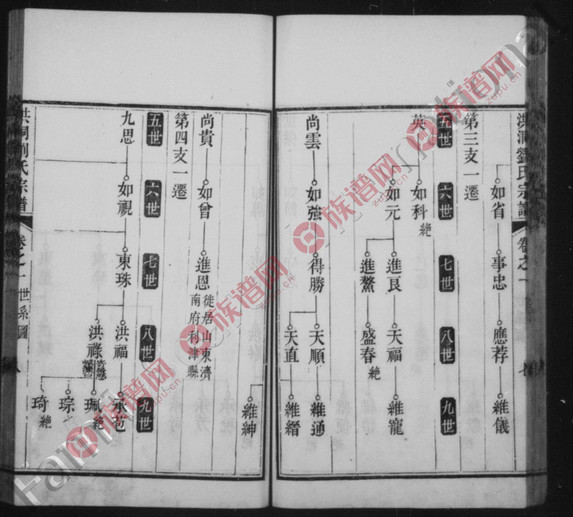 洪洞劉氏宗譜
卷之一
如省
事忠
應荐
維儀
第三支一遷
五世
六世
七世
八世
九世
英
如科 絶
如元
進良
天福
維寵
進鰲
盛春 絶
尚雲
如強
得勝
天順
維通
天直
維縉
維紳
尚貴
如曾
進恩
徙居山東濟
南府利津縣
第四支一遷
五世
六世
七世
八世
九世
九思
如視
東珠
洪福
承苞
洪祿
珮 絶
琮
琦 絶
洪洞劉氏宗譜
卷之一
世系圖
八
族谱网
族谱网
族谱网
族谱网